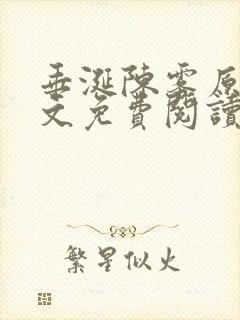 垂涎陳霧原
文免費閱讀
繁星似火